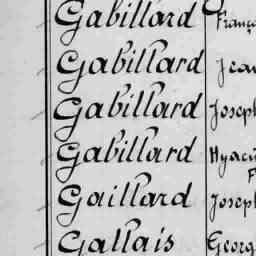 Gabillard Franç
Gabillard Jean
Gabillard Joseph
Gabillard Hyaci
Gaillard Joseph
Gallais Georg